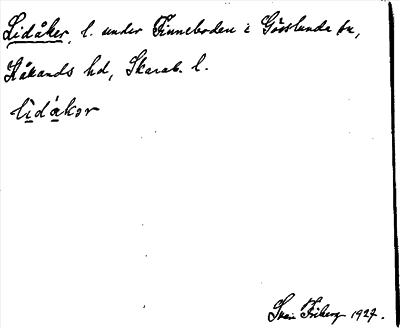 Lidåker, l. under Finneboden i Gösslunda sn,
Kåkands hd, Skarab. l.
lidåkər
Sven Friberg 1927.